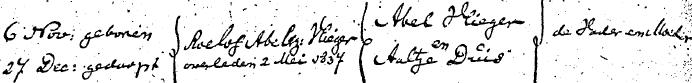 6 Nov: geboren
27 Dec: gedoopt
Roelof Abels: Vlieger
overleden 2 Mei 1837
Abel Vlieger
en
Aaltje Duis
de Vader en Moeder